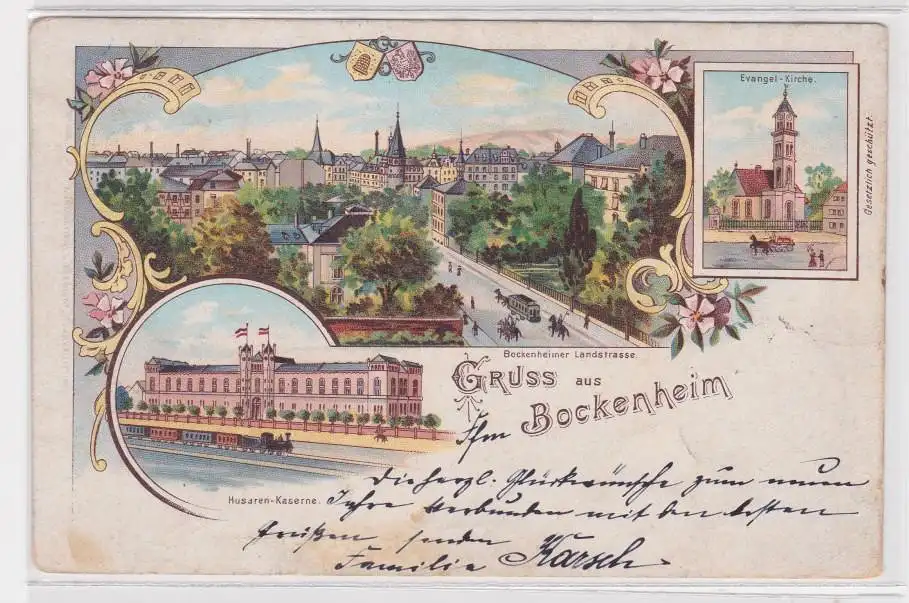 Evangel-Kirche.
Gesetzlich geschützt.
Bockenheimer Landstrasse.
GRUSS aus
Bockenheim
Husaren-Kaserne.
Ihm
die herzl. Glückwünsche zum neuen
Jahre verbunden mit den besten
Grüßen senden
Familie Karsch.